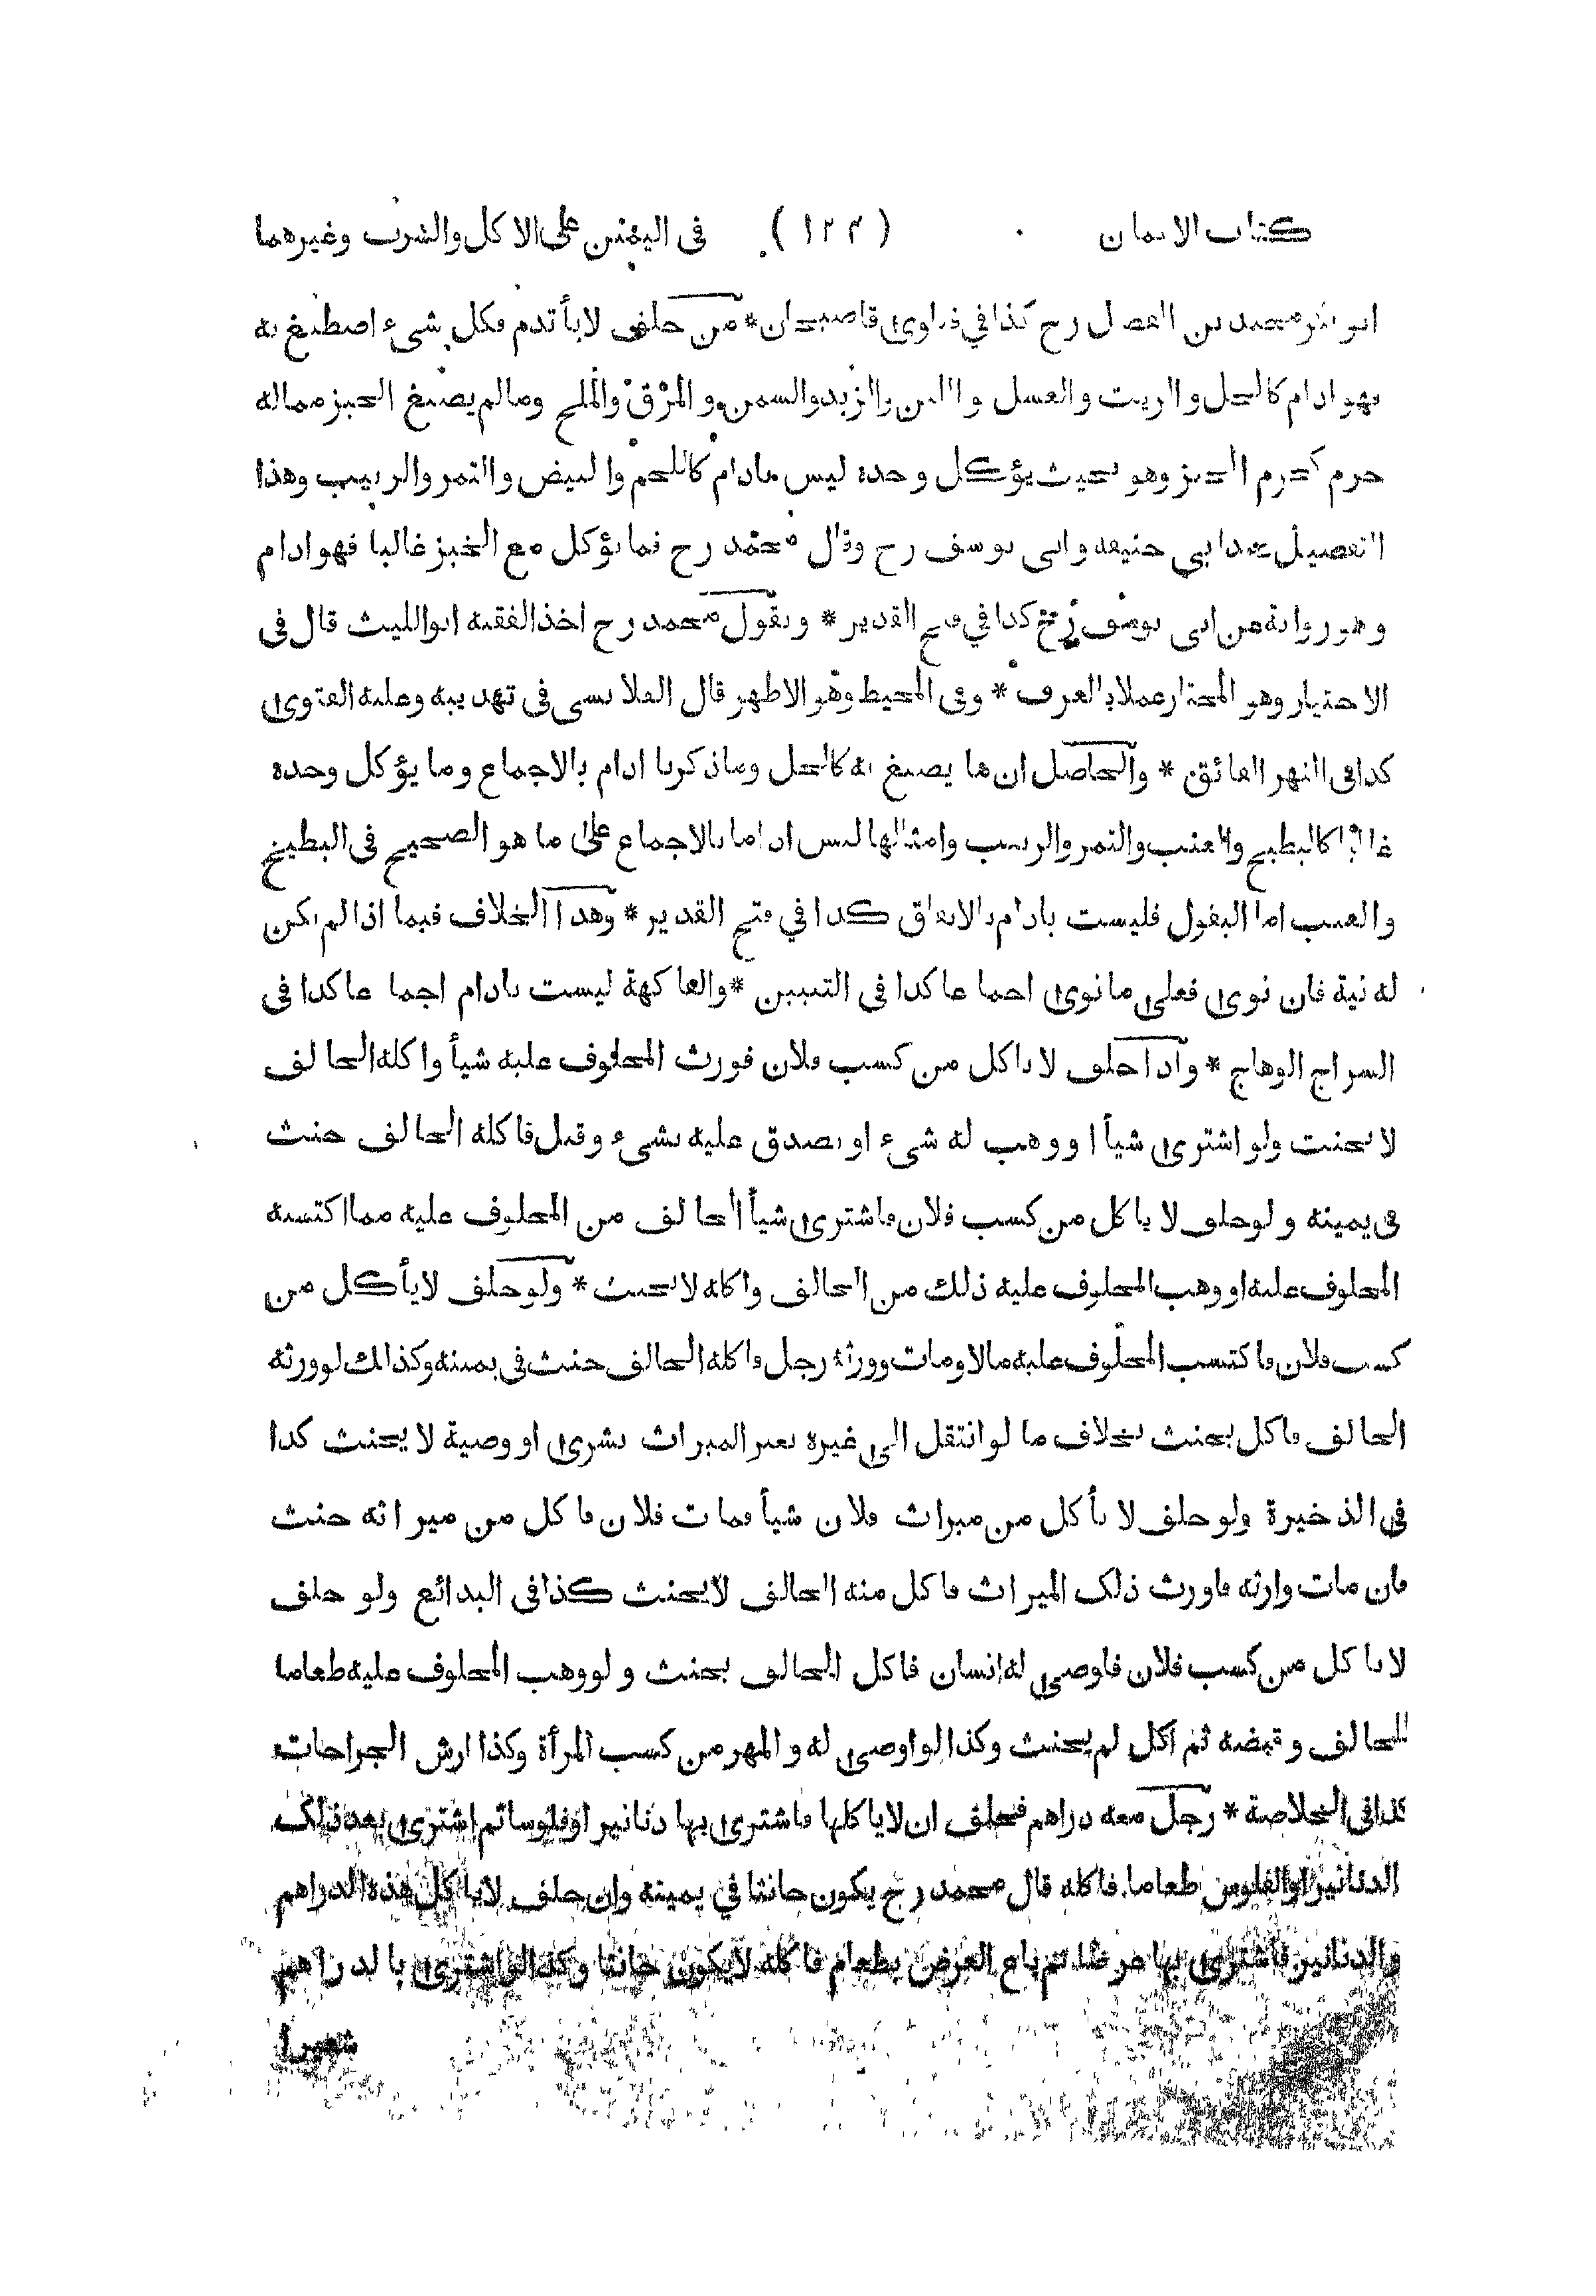 كتاب الايمان ( ١٢٣ ) في اليمين على الاكل والشرب وغيرهما
ابو بكر محمد بن الفضل رح كذا في فتاوى قاضيخان * من حلف لا يأتدم فكل شيء اصطبغ به
فهو ادام كالخل والزيت والعسل واللبن والزبد والسمن والمرق والملح ومالم يصبغ الخبز مماله
جرم كجرم الخبز وهو بحيث يؤكل وحده ليس بادام كاللحم والبيض والتمر والزبيب وهذا
التفصيل عند ابي حنيفه وابى يوسف رح وقال محمد رح فما يؤكل مع الخبز غالبا فهو ادام
وهو رواية عن ابى يوسف رح كذا في فتح القدير * وبقول محمد رح اخذ الفقيه ابو الليث قال في
الاختيار وهو المختار عملا بالعرف * وفي المحيط وهو الاظهر قال القلانسى فى تهذيبه وعليه الفتوى
كذا فى النهر الفائق * والحاصل ان ما يصبغ به كالخل وما ذكرنا ادام بالاجماع وما يؤكل وحده
غالبا كالبطيخ والعنب والتمر والزبيب وامثالها ليس اداما بالاجماع على ما هو الصحيح فى البطيخ
والعنب اما البقول فليست بادام بالاتفاق كذا في فتح القدير * وهذا الخلاف فيما اذا لم يكن
له نية فان نوى فعلى ما نوى اجماعا كذا في التبيين * والفاكهة ليست بادام اجماعا كذا فى
السراج الوهاج * واذا حلف لا يأكل من كسب فلان فورث المحلوف عليه شيأ واكله الحالف
لا يحنث ولو اشترى شيأ او وهب له شيء او تصدق عليه بشيء وقبل فاكله الحالف حنث
فى يمينه ولو حلف لا ياكل من كسب فلان فاشترى شيأ الحالف من المحلوف عليه مما اكتسبه
المحلوف عليه او وهب المحلوف عليه ذلك من الحالف واكله لا يحنث * ولو حلف لا يأكل من
كسب فلان فاكتسب المحلوف عليه مالا ومات وورثه رجل فاكله الحالف حنث فى يمينه وكذالك لو ورثه
الحالف فاكل يحنث بخلاف ما لو انتقل الى غيره بغير الميراث بشرى او وصية لا يحنث كذا
فى الذخيرة ولو حلف لا يأكل من ميراث فلان شيأ فمات فلان فاكل من ميراثه حنث
فان مات وارثه فاورث ذلك الميراث فاكل منه الحالف لا يحنث كذا في البدائع ولو حلف
لا ياكل من كسب فلان فاوصى له انسان فاكل الحالف يحنث ولو وهب المحلوف عليه طعاما
للحالف وقبضه ثم اكل لم يحنث وكذا لو اوصى له والمهر من كسب المرأة وكذا ارش الجراحات
كذا فى الخلاصة * رجل معه دراهم فحلف ان لا ياكلها فاشترى بها دنانير او فلوسا ثم اشترى بعد ذلك
الدنانير او الفلوس طعاما فاكله قال محمد رح يكون حانثا في يمينه وان حلف لا ياكل هذه الدراهم
والدنانير فاشترى بها عرضا ثم باع العرض بطعام فاكله لا يكون حانثا وكذا لو اشترى بالدراهم
شعيرا